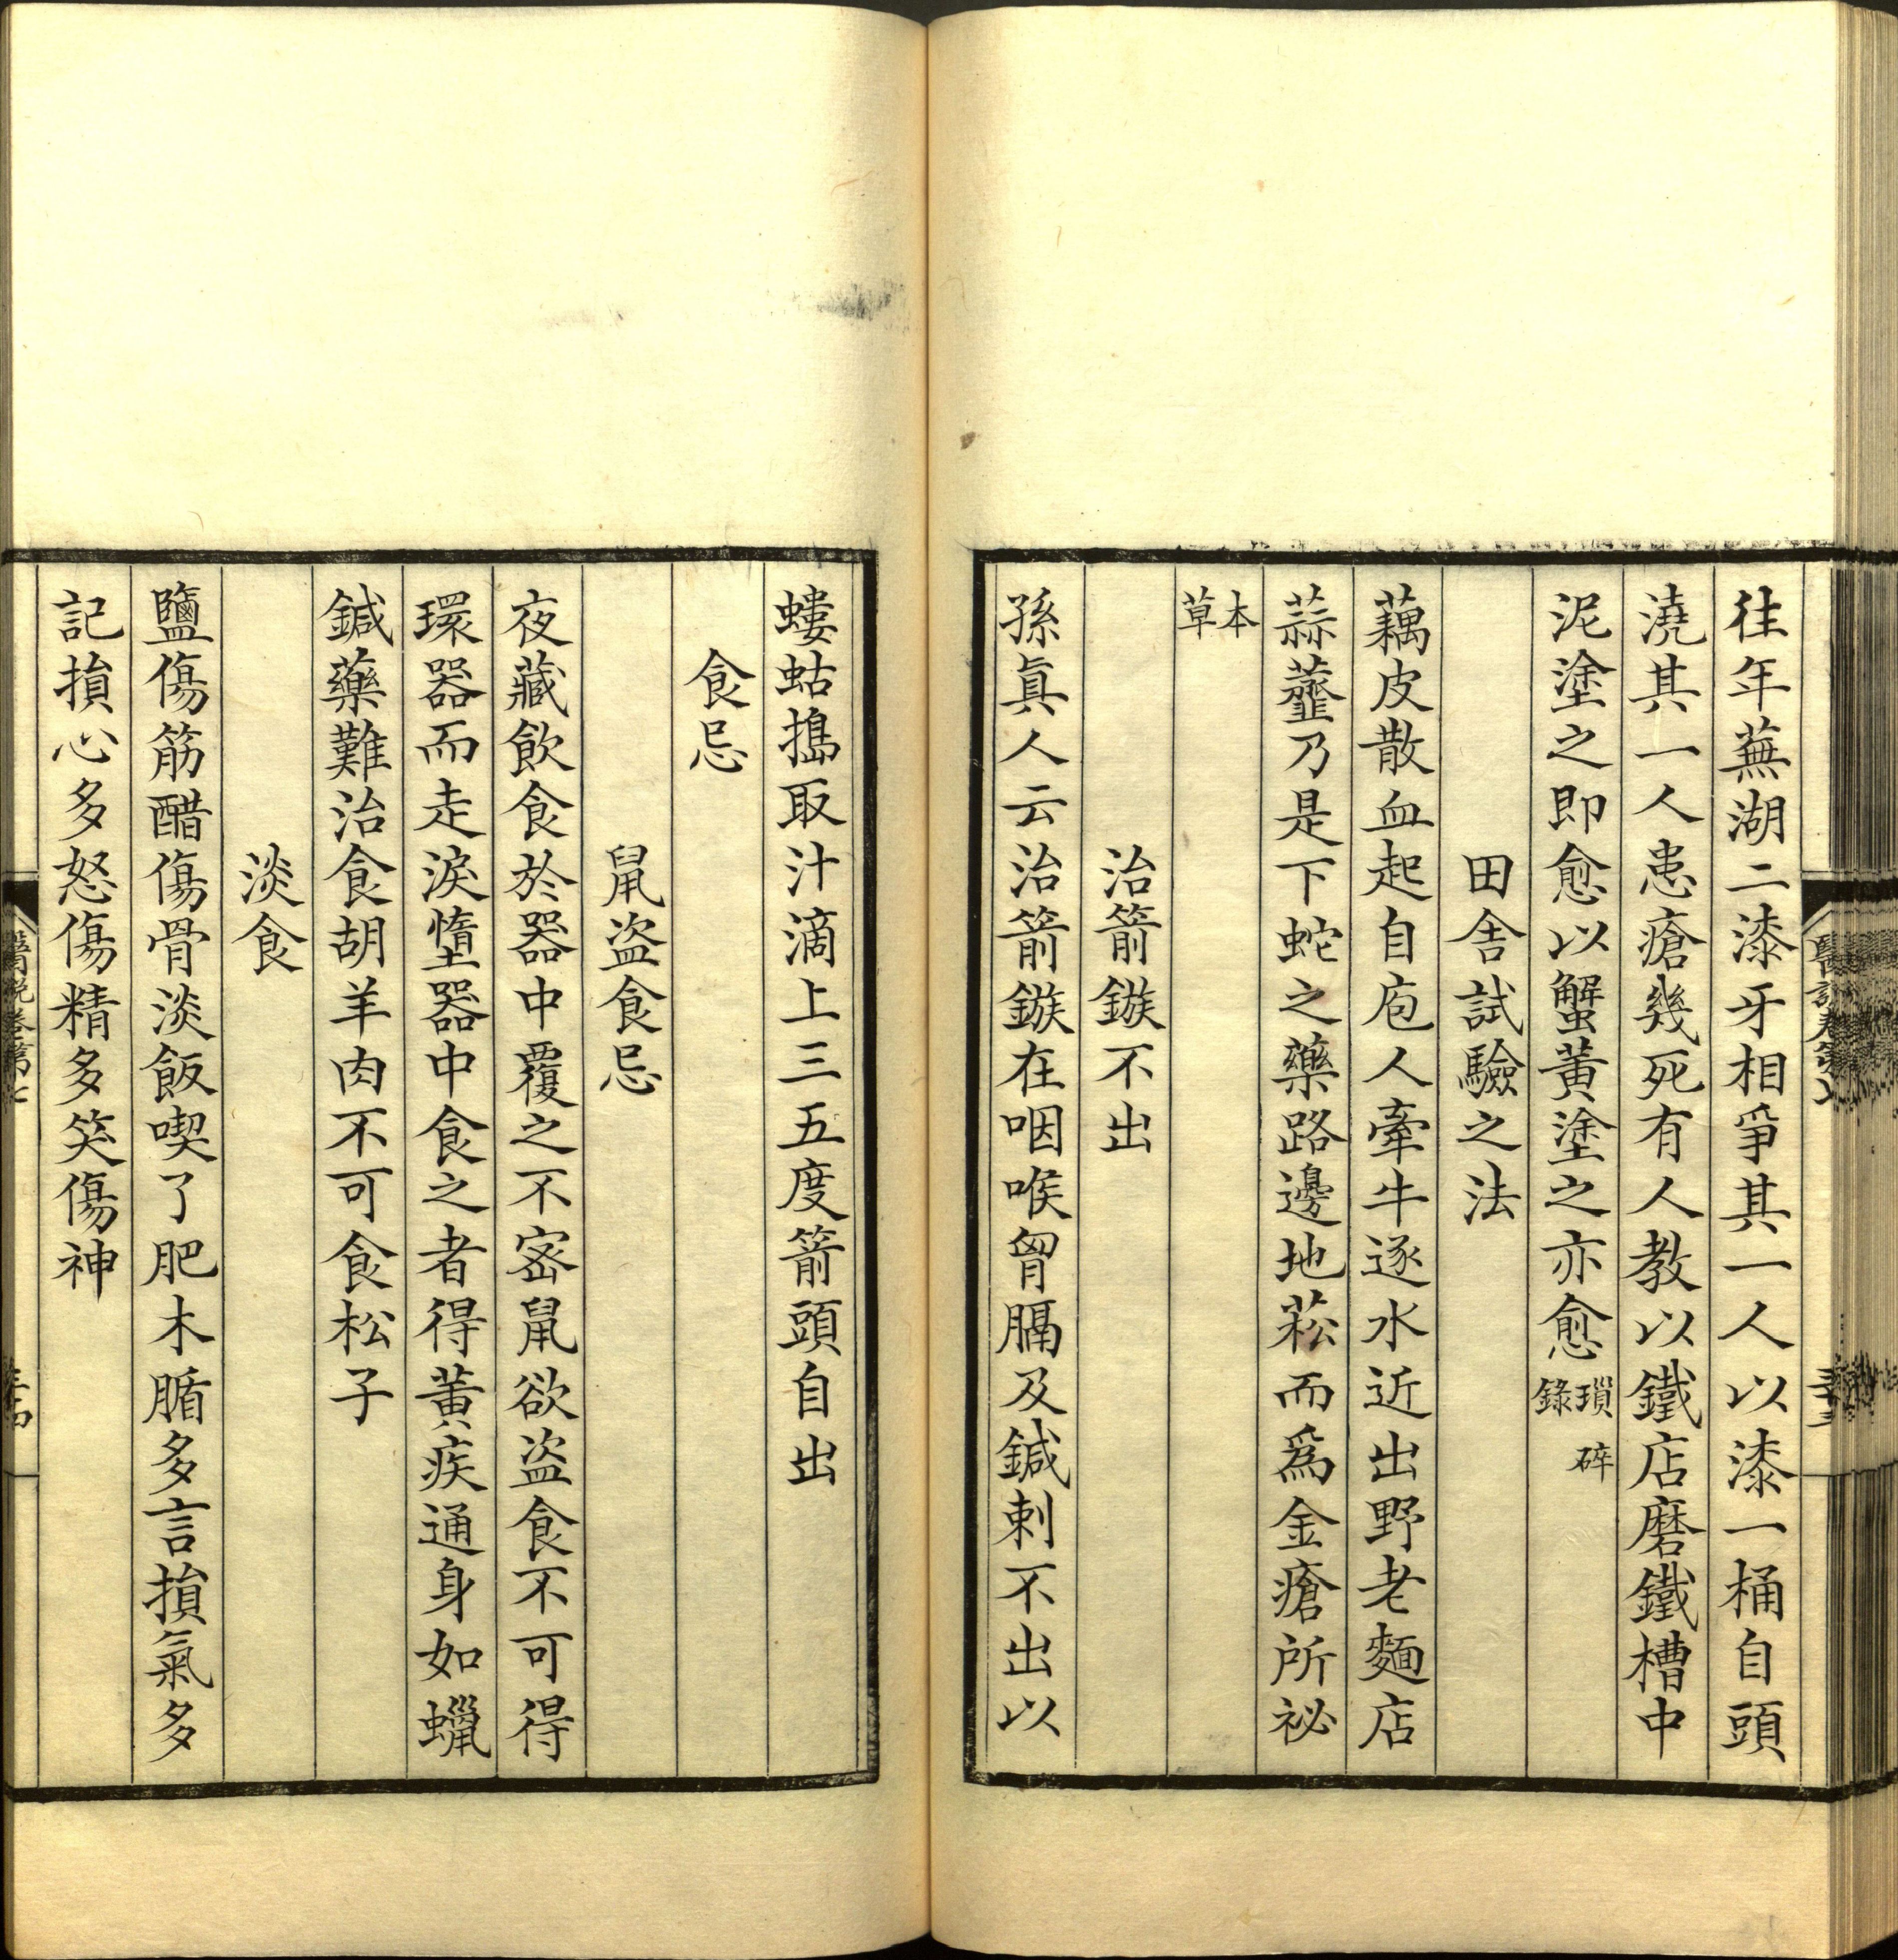 往年蕪湖二漆牙相爭其一人以漆一桶自頭
澆其一人患瘡幾死有人教以鐵店磨鐵槽中
泥塗之即愈以蟹黃塗之亦愈瑣碎錄
田舍試驗之法
藕皮散血起自庖人牽牛逐水近出野老麵店
蒜虀乃是下蛇之藥路邊地菘而為金瘡所祕
本草
治箭鏃不出
孫真人云治箭鏃在咽喉胷膈及鍼刺不出以
螻蛄搗取汁滴上三五度箭頭自出
食忌
鼠盜食忌
夜藏飲食於器中覆之不密鼠欲盜食不可得
環器而走淚墮器中食之者得黃疾通身如蠟
鍼藥難治食胡羊肉不可食松子
淡食
鹽傷筋醋傷骨淡飯喫了肥木腯多言損氣多
記損心多怒傷精多笑傷神
醫說卷第七